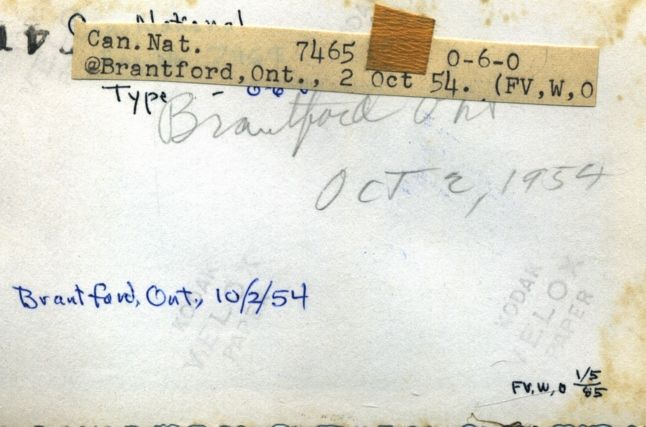 National
Can.Nat. 7465 0-6-0
@Brantford,Ont., 2 Oct 54. (FV,W,O
Type - 0-6-0
Brantford Ont
OCT 2, 1954
Brantford, Ont., 10/2/54
KODAK
VELOX
PAPER
KODAK
VELOX
PAPER
FV,W,O 1/5/85